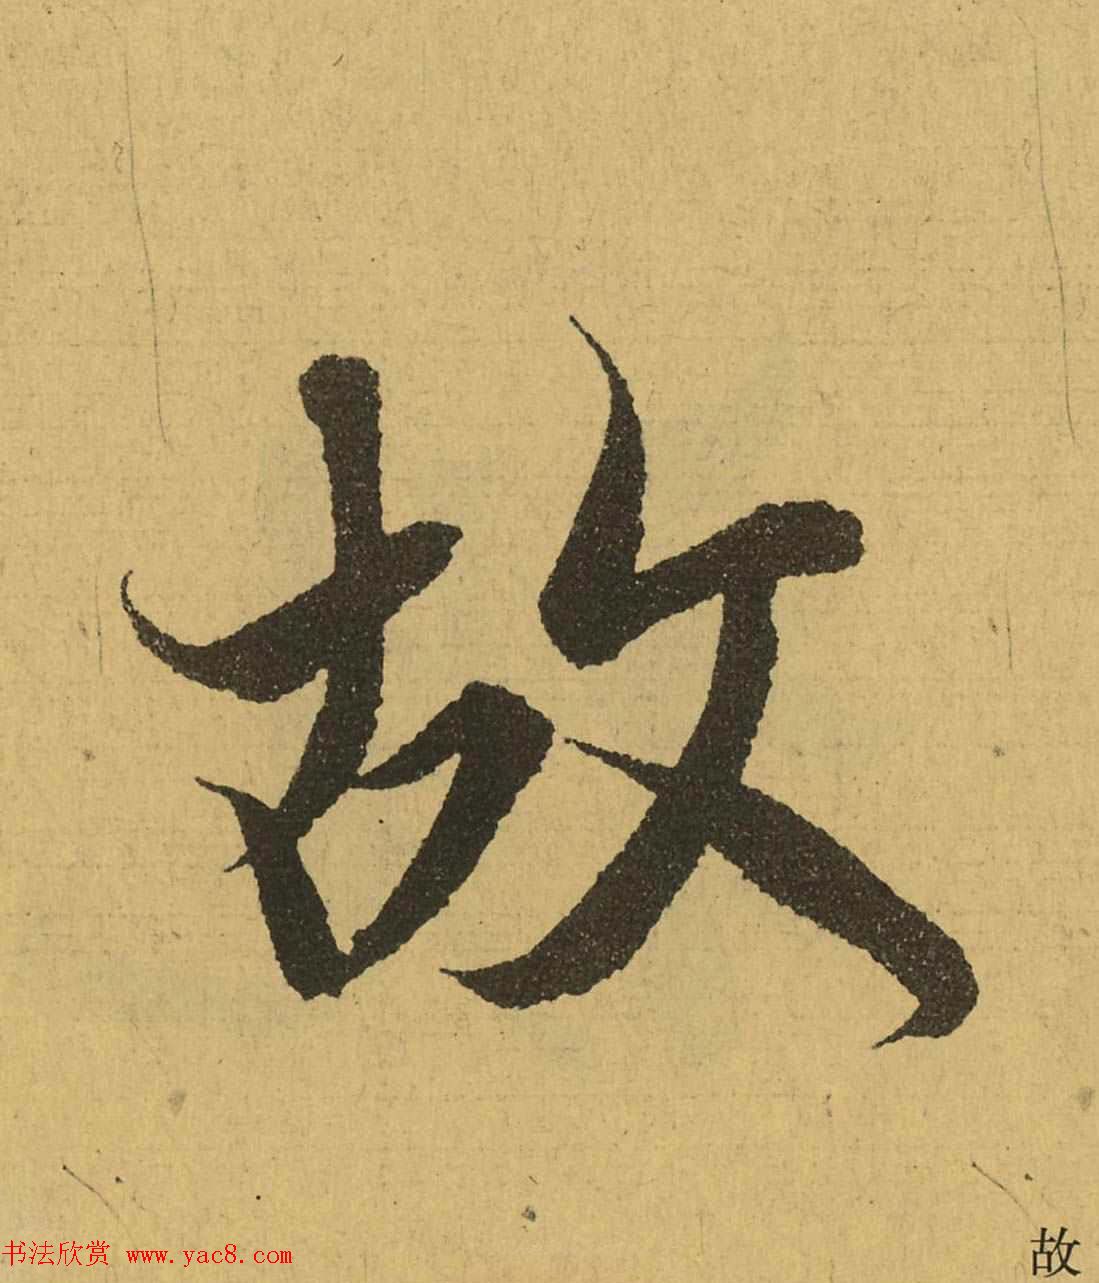 故
书法欣赏 www.yac8.com
故